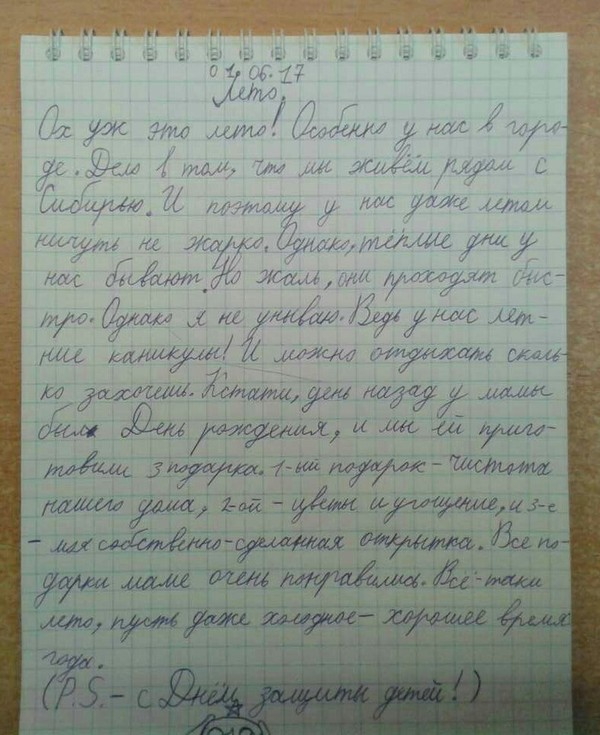 01.06.17
Лето.
Ох уж это лето! Особенно у нас в горо-
де. Дело в том, что мы живём рядом с
Сибирью. И поэтому у нас даже летом
ничуть не жарко. Однако, тёплые дни у
нас бывают. Но жаль, они проходят быс-
тро. Однако я не унываю. Ведь у нас лет-
ние каникулы! И можно отдыхать сколь-
ко захочешь. Кстати, день назад у мамы
был День рождения, и мы ей приго-
товили 3 подарка. 1-ый подарок – чистота
нашего дома, 2-ой – цветы и угощение, и 3-е
– моя собственно-сделанная открытка. Все по-
дарки маме очень понравились. Всё-таки
лето, пусть даже холодное – хорошее время
года.
(P.S. – с Днём защиты детей!)